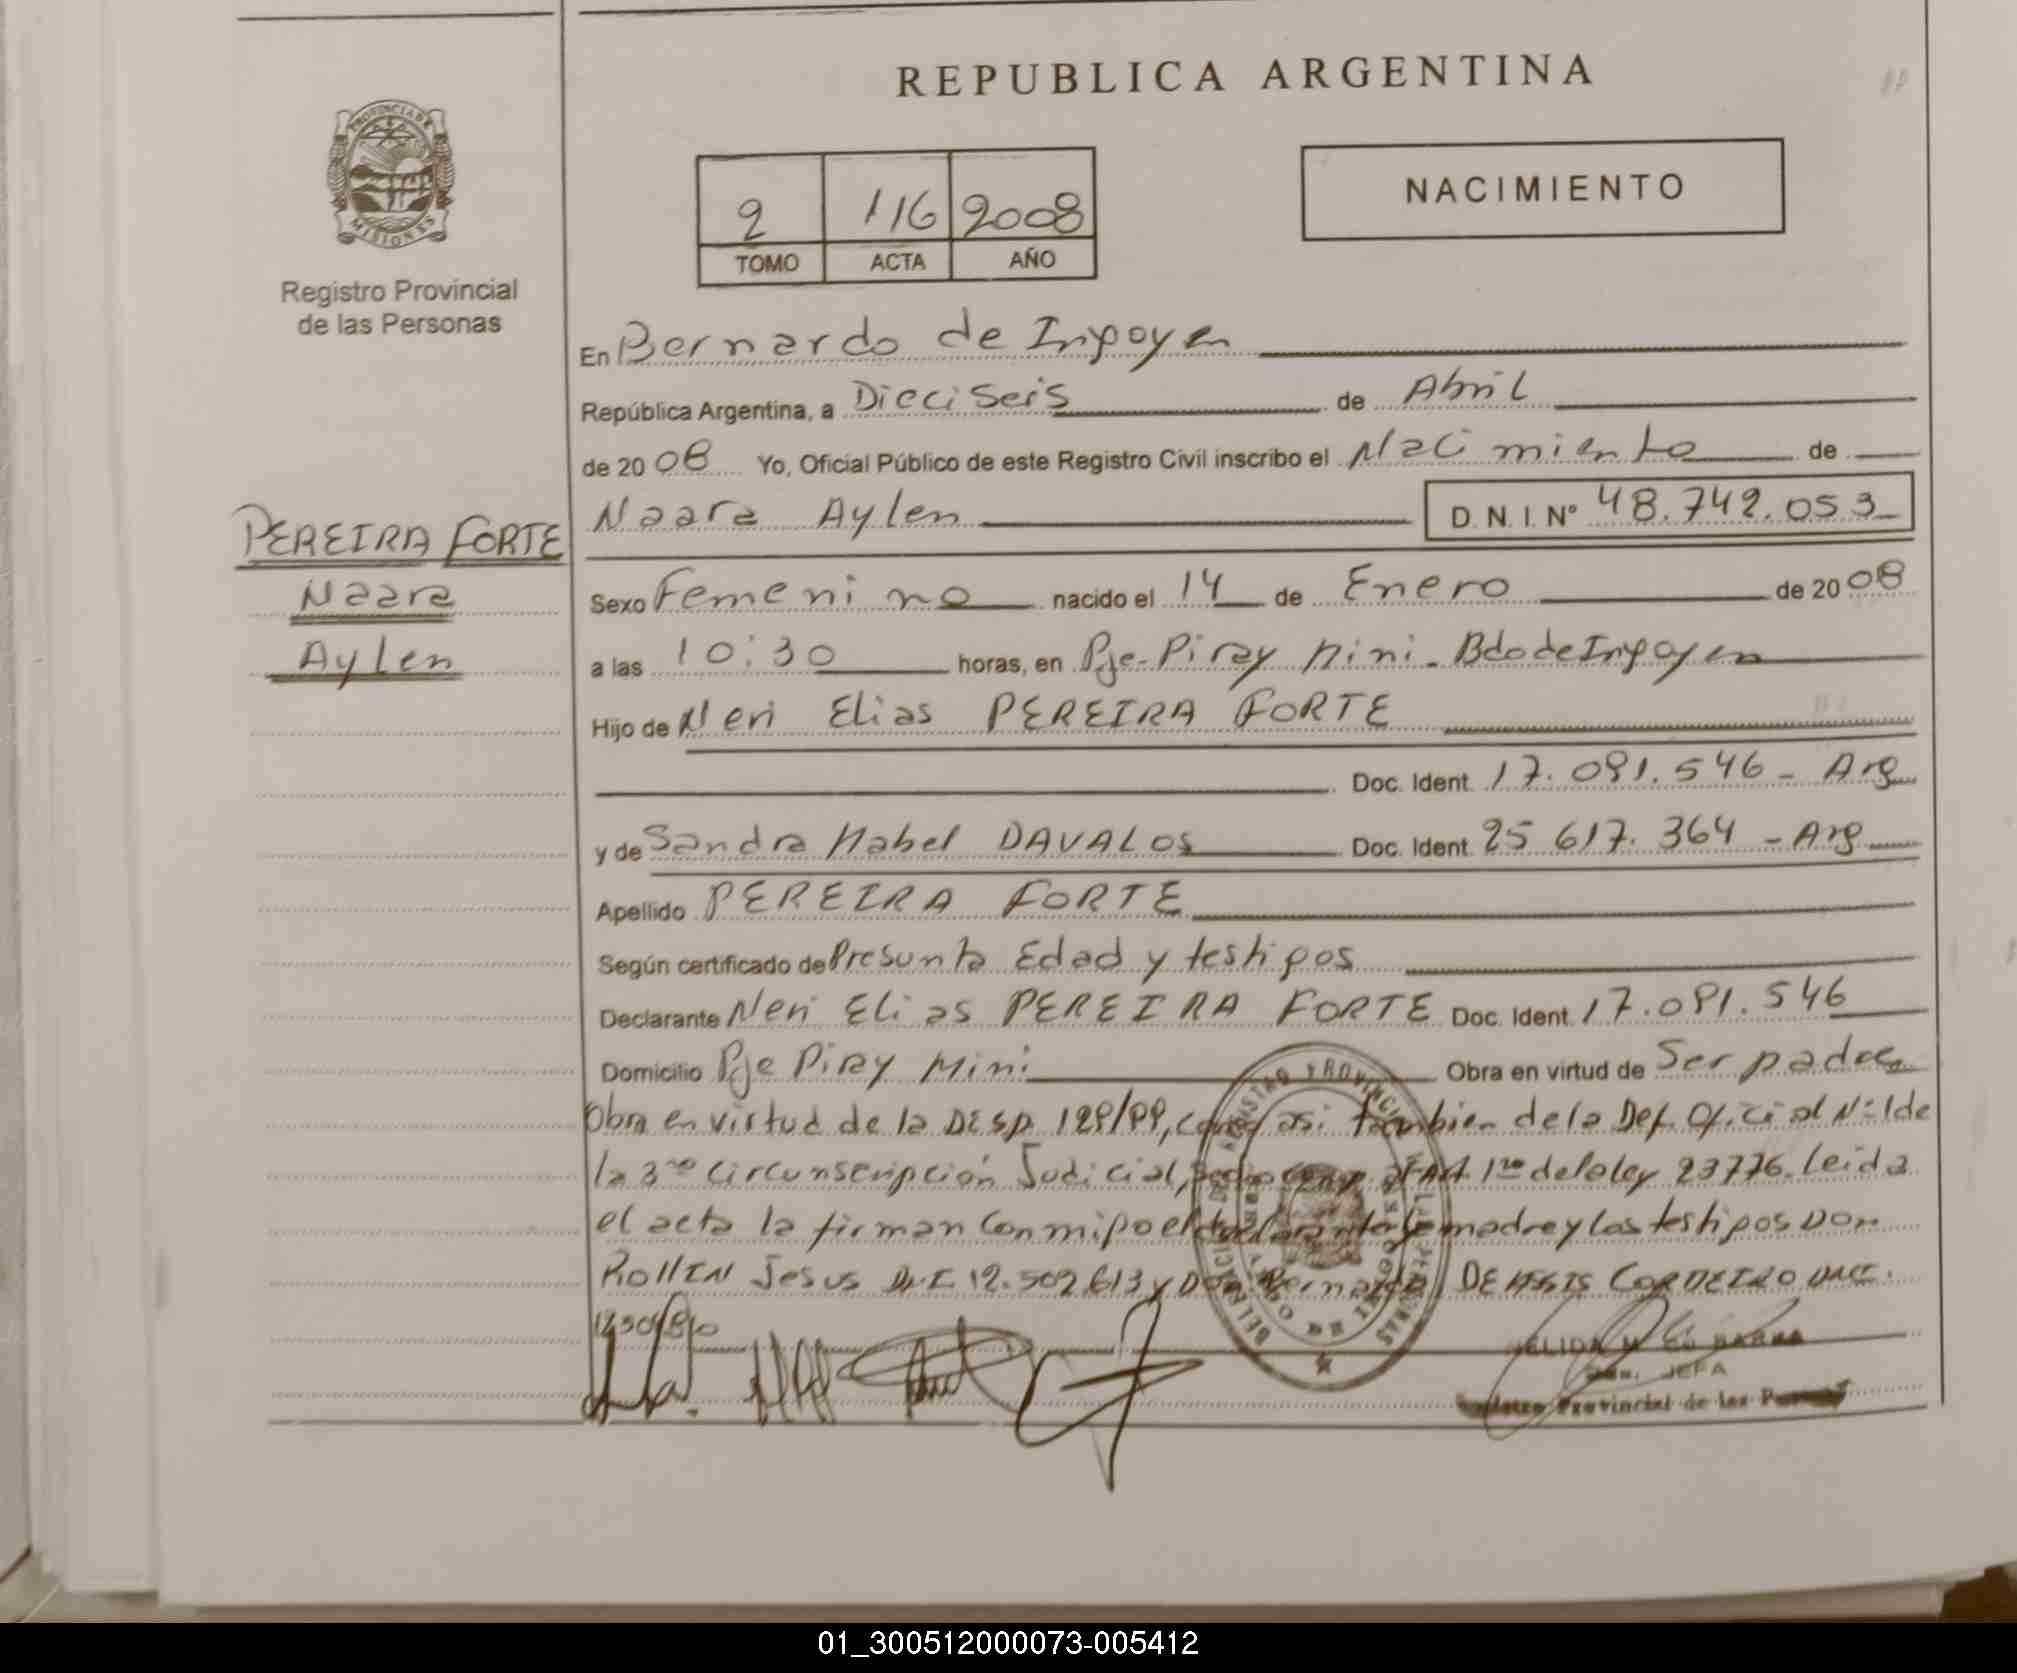 REPUBLICA ARGENTINA
PROVINCIA DE MISIONES
Registro Provincial
de las Personas
2 116 2008
TOMO ACTA AÑO
NACIMIENTO
En Bernardo de Irigoyen
República Argentina, a Dieciseis de Abril
de 2008 Yo, Oficial Público de este Registro Civil inscribo el Nacimiento de
Naara Aylen D.N.I. Nº 48.742.053
PEREIRA FORTE
Naara
Aylen
Sexo Femenino nacido el 14 de Enero de 2008
a las 10:30 horas, en Pje-Piray Mini - Bdo de Irigoyen
Hijo de Neri Elias PEREIRA FORTE
Doc. Ident. 17.091.546 - Arg
y de Sandra Mabel DAVALOS Doc. Ident. 25 617.364 - Arg
Apellido PEREIRA FORTE
Según certificado de Presunta Edad y testigos
Declarante Neri Elias PEREIRA FORTE Doc. Ident. 17.091.546
Domicilio Pje Piray Mini Obra en virtud de Ser padre
Obra en virtud de la Disp. 129/99, como asi tambien de la Def. Oficial Nº 1 de
la 3ra Circunscripción Judicial, Art 1ro de la ley 23776. Leida
el acta la firman conmigo el declarante la madre y los testigos Don
Jesus D.N.I. 12.502.613 y Don Bernardo DE ASSIS CORDEIRO DNI.
JEFA
Registro Provincial de las Personas
01_300512000073-005412